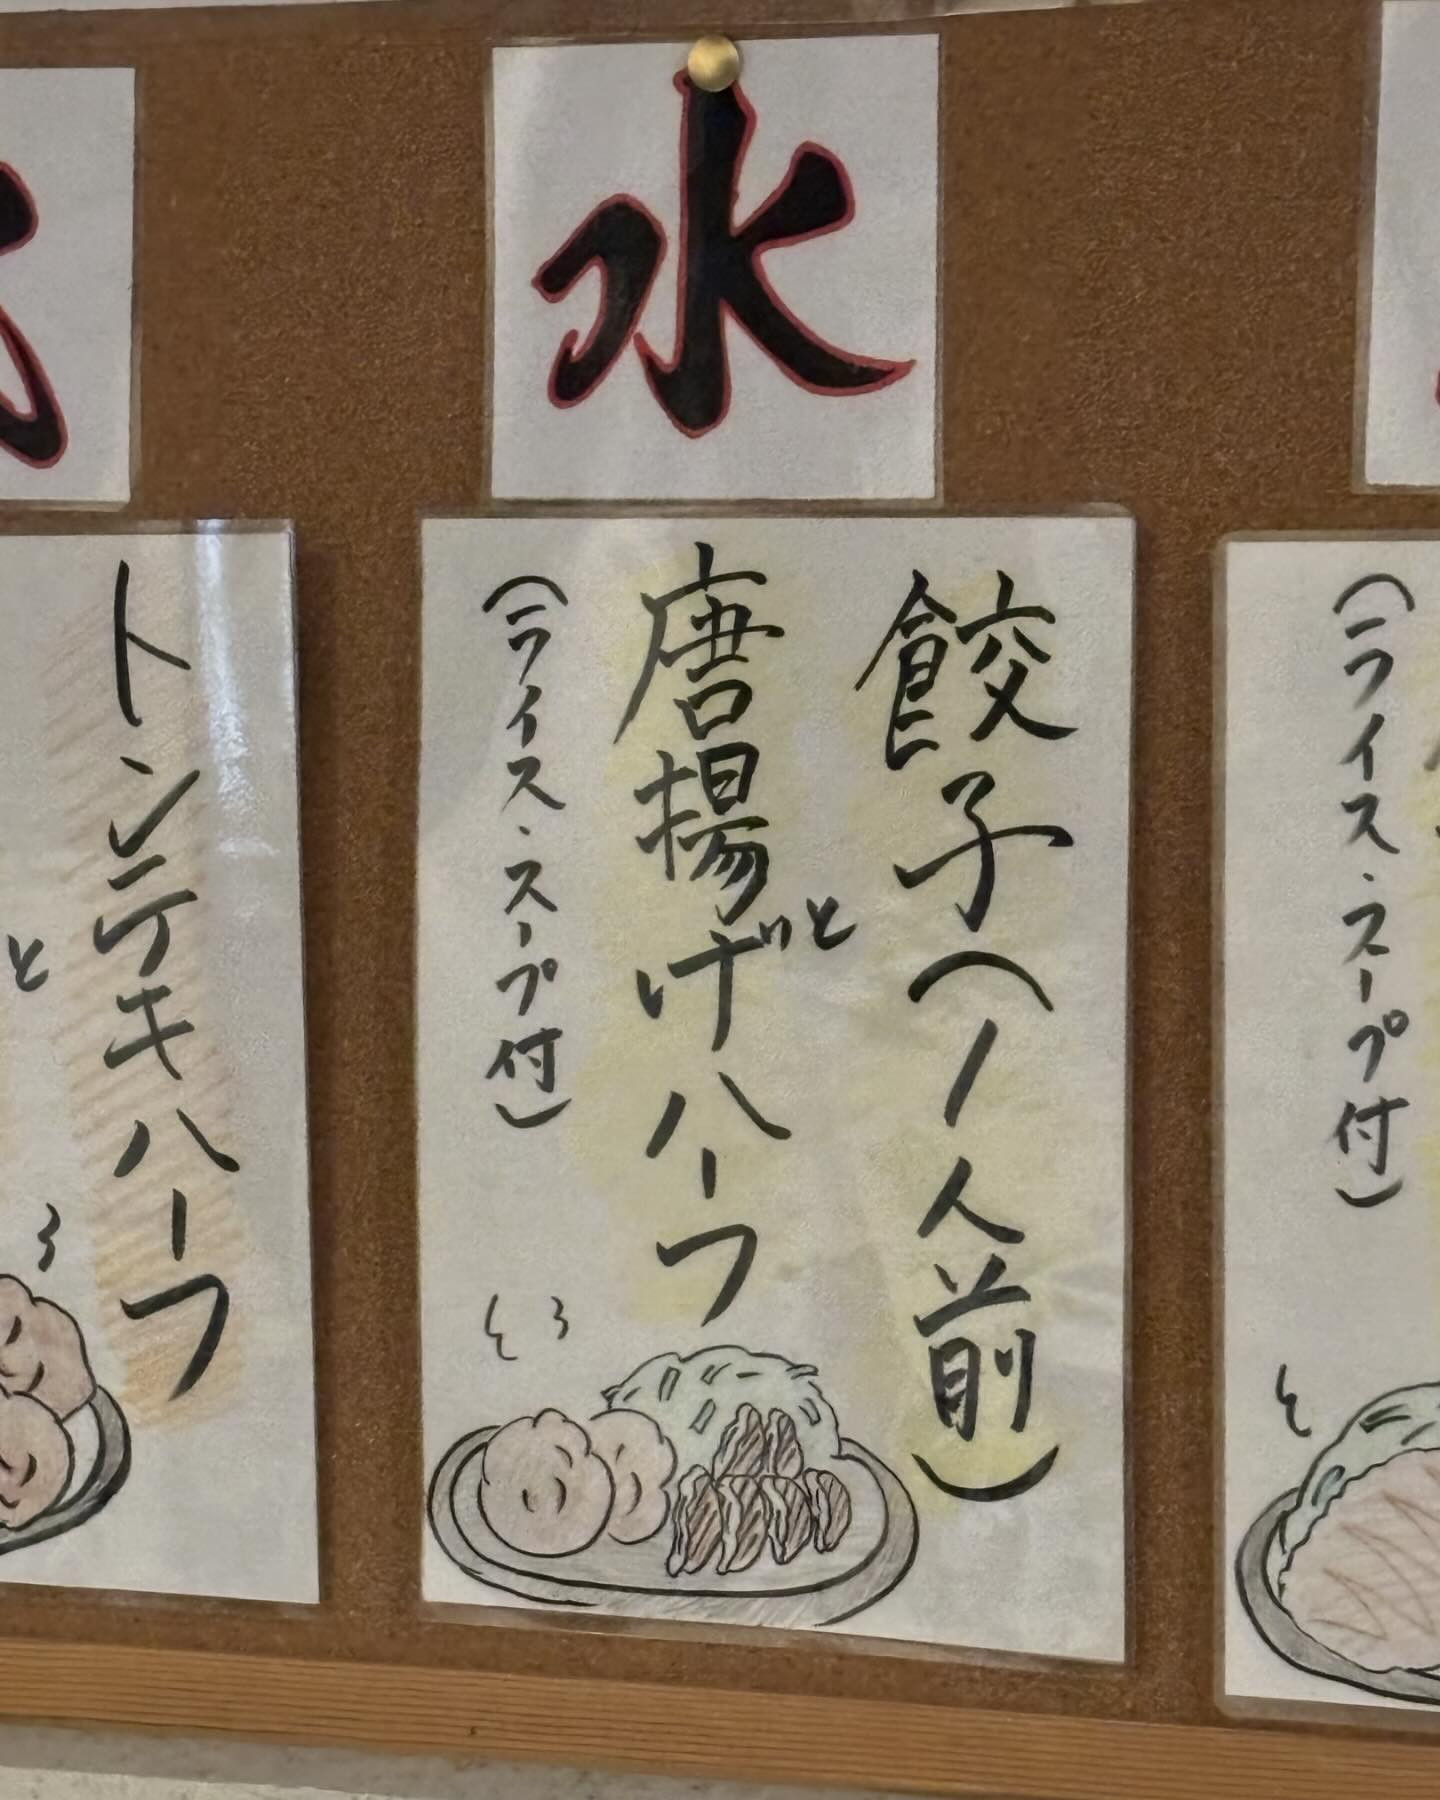 水
餃子(1人前)
と
唐揚げハーフ
(ライス・スープ付)
トンテキハーフ
と
(ライス・スープ付)